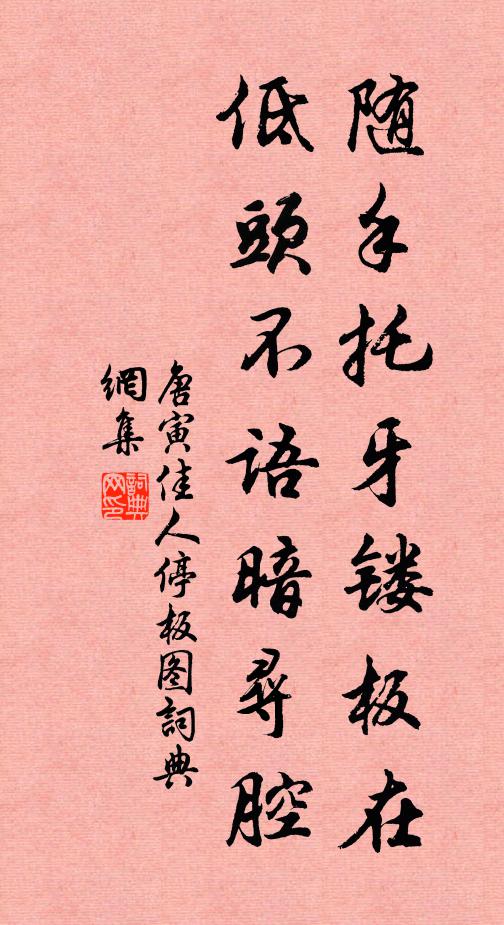 随手托牙镂板在
低頭不语暗尋腔
唐寅佳人停板图詞典
網集
詞典
网印